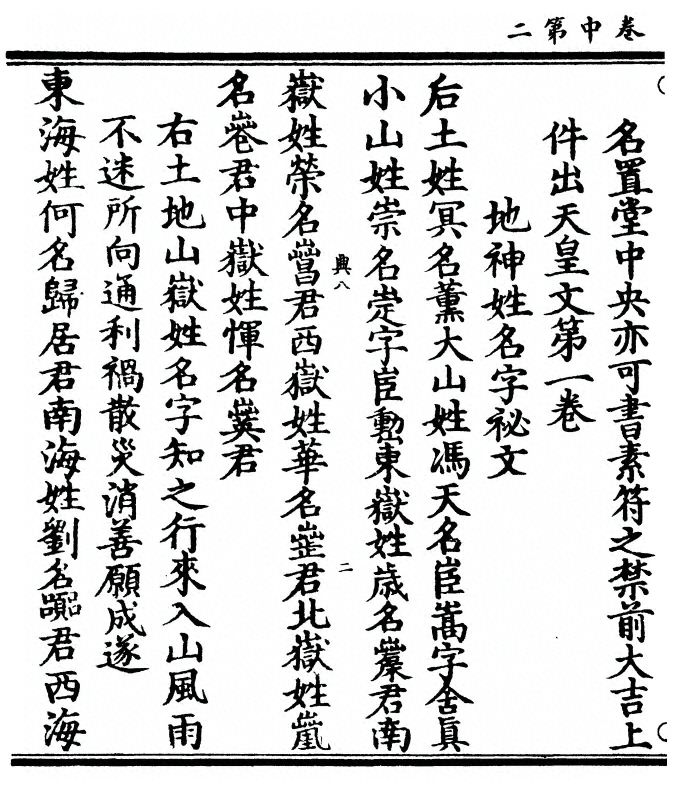 卷中第二
名置堂中央亦可書素符之禁前大吉上
件出天皇文第一卷
地神姓名字祕文
后土姓冥名薰大山姓馮天名臣嵩字舍眞
小山姓崇名岦字臣勳東嶽姓歲名君南
嶽姓榮名君西嶽姓華名君北嶽姓嵐
名君中嶽姓惲名君
右土地山嶽姓名字知之行來入山風雨
不迷所向通利禍散災消善願成遂
東海姓何名歸居君南海姓劉名君西海
典八
二